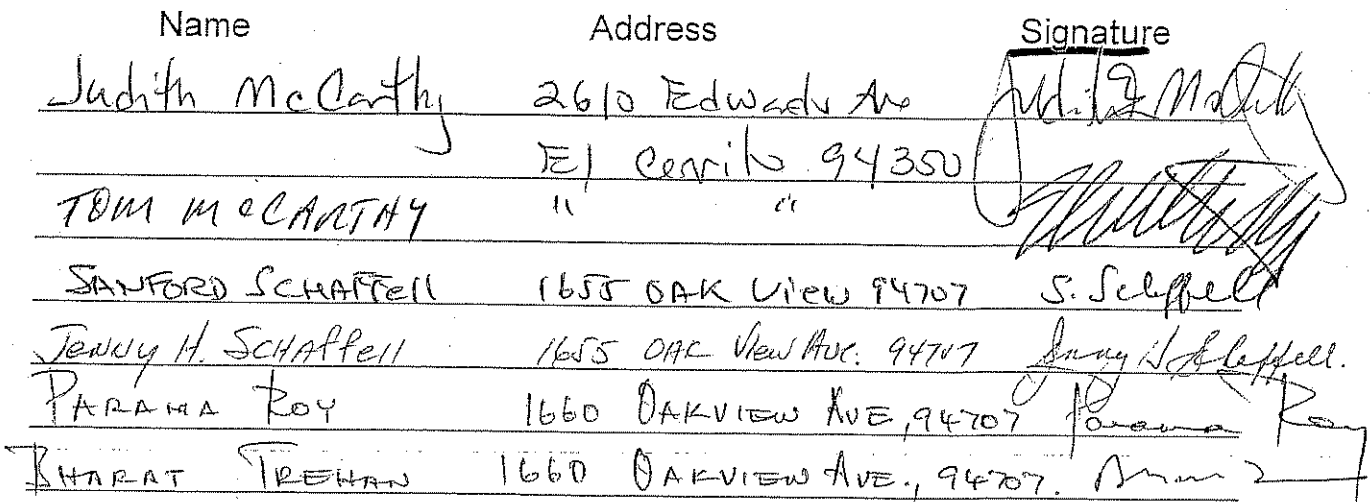 Name Address Signature
Judith McCarthy 2610 Edwards Ave
El Cerrito 94350
TOM McCARTHY " "
SANFORD SCHAFFell 1655 OAK View 94707 S. Schaffell
Jenny H. SCHAffell 1655 OAK View Ave. 94707 Jenny H Schaffell.
PARAMA ROY 1660 OAKVIEW AVE, 94707 Parama Roy
BHARAT TREHAN 1660 OAKVIEW AVE., 94707.